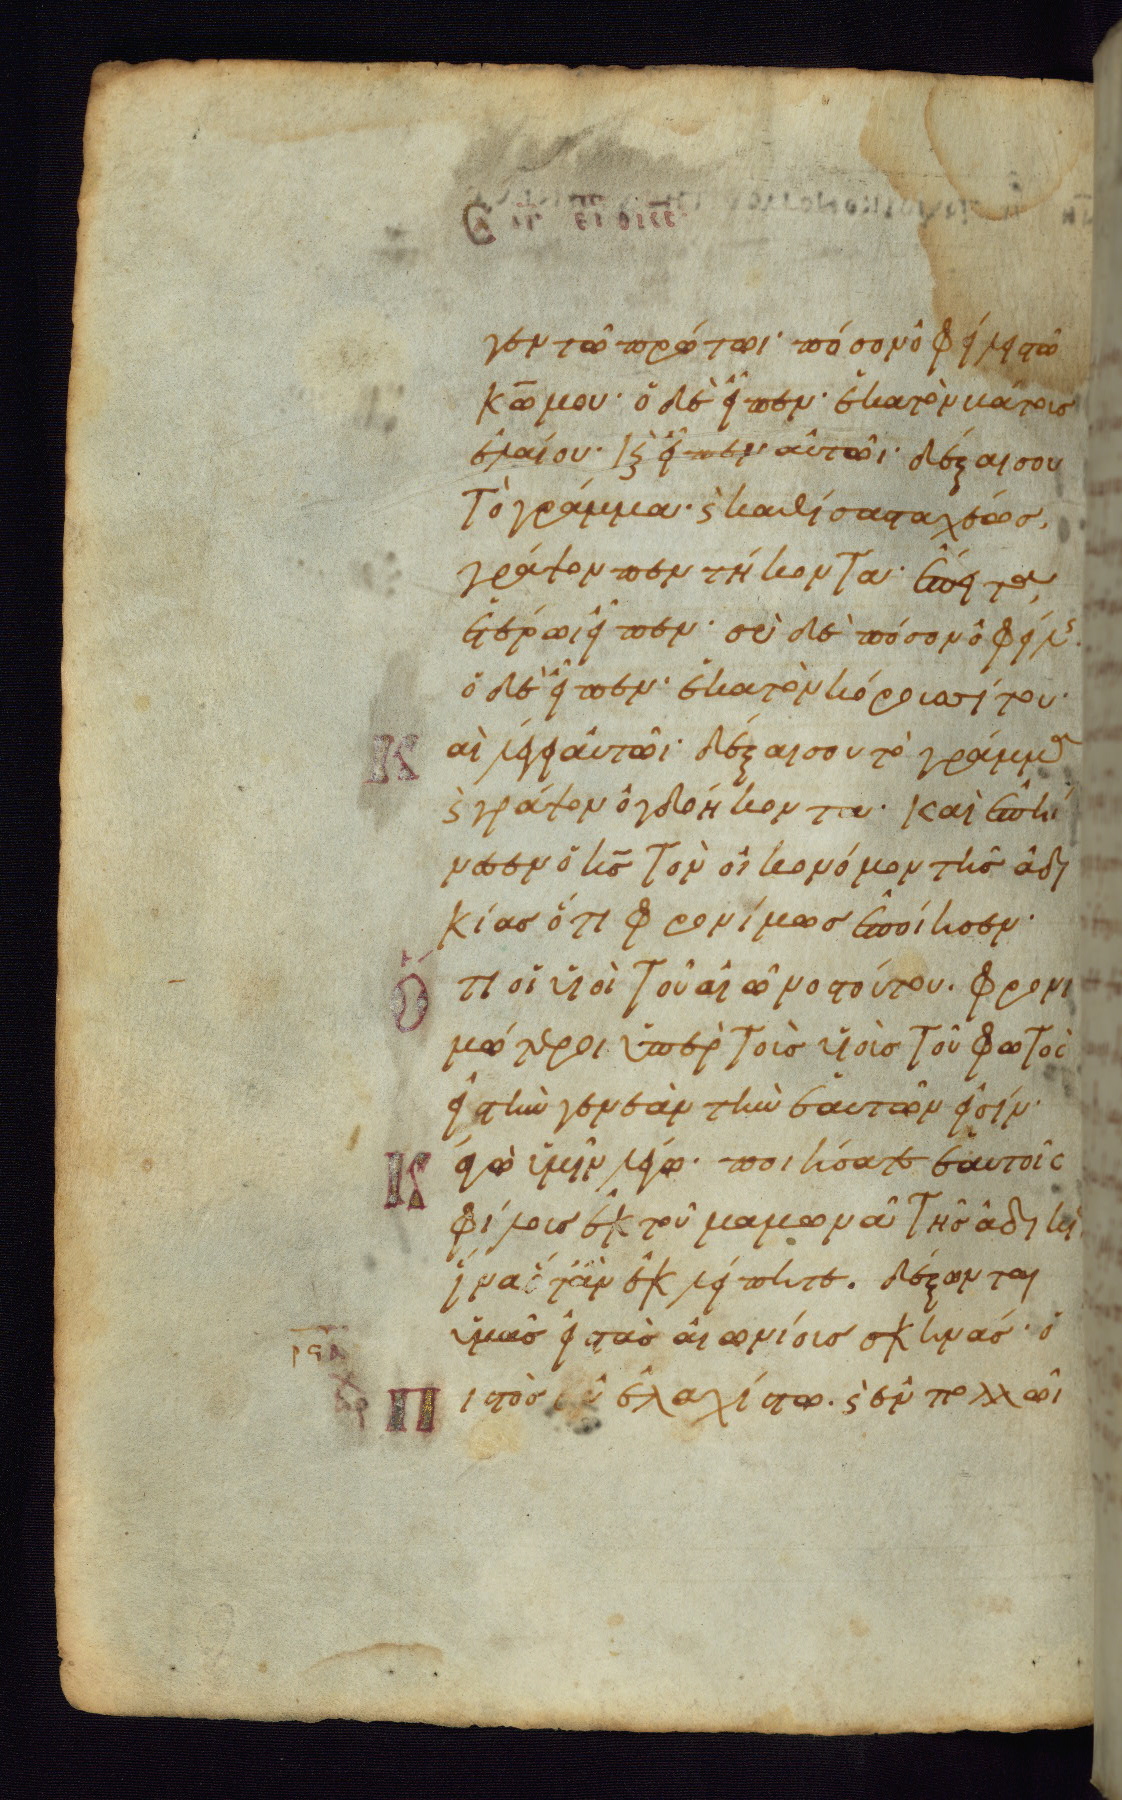 γεν τῶ πρώτωι· πόσον ὀφείλεις τῶ
κ̅ω̅ μου· ὁ δὲ εἶπεν· ἑκατὸν κάτους
ἐλαίου· Κς εἶπεν αὐτῶι· δέξαι σου
τὸ γράμμα· ϛ καθίσας ταχέως,
γράψον πεντήκοντα· ἔπειτα
ἑτέρωι εἶπεν· σὺ δὲ πόσον ὀφείλεις
ὁ δὲ εἶπεν· ἑκατὸν κόρους σίτου·
Καὶ λέγει αὐτῶι· δέξαι σου τὸ γράμμα
ϛ γράψον ὀγδοήκοντα· Καὶ ἐπήι
νεσεν ὁ κ̅ς̅ τὸν οἰκονόμον τῆς ἀδι
κίας ὅτι φρονίμως ἐποίησεν·
Ὅτι οἱ υἱοὶ τοῦ αἰῶνος τούτου. φρονι
μώτεροι ὑπὲρ τοὺς υἱοὺς τοῦ φωτὸς
εἰς τὴν γενεὰν τὴν ἑαυτῶν εἰσίν·
Κἀγὼ ὑμῖν λέγω· ποιήσατε ἑαυτοῖς
φίλους ἐκ τοῦ μαμωνᾶ τῆς ἀδικί
ἵνα ὅταν ἐκλείπητε. δέξωνται
ὑμᾶς εἰς τὰς αἰωνίους σκηνάς· ὁ
Πιστὸς ἐν ἐλαχίστω. ϛ ἐν πολλῶι